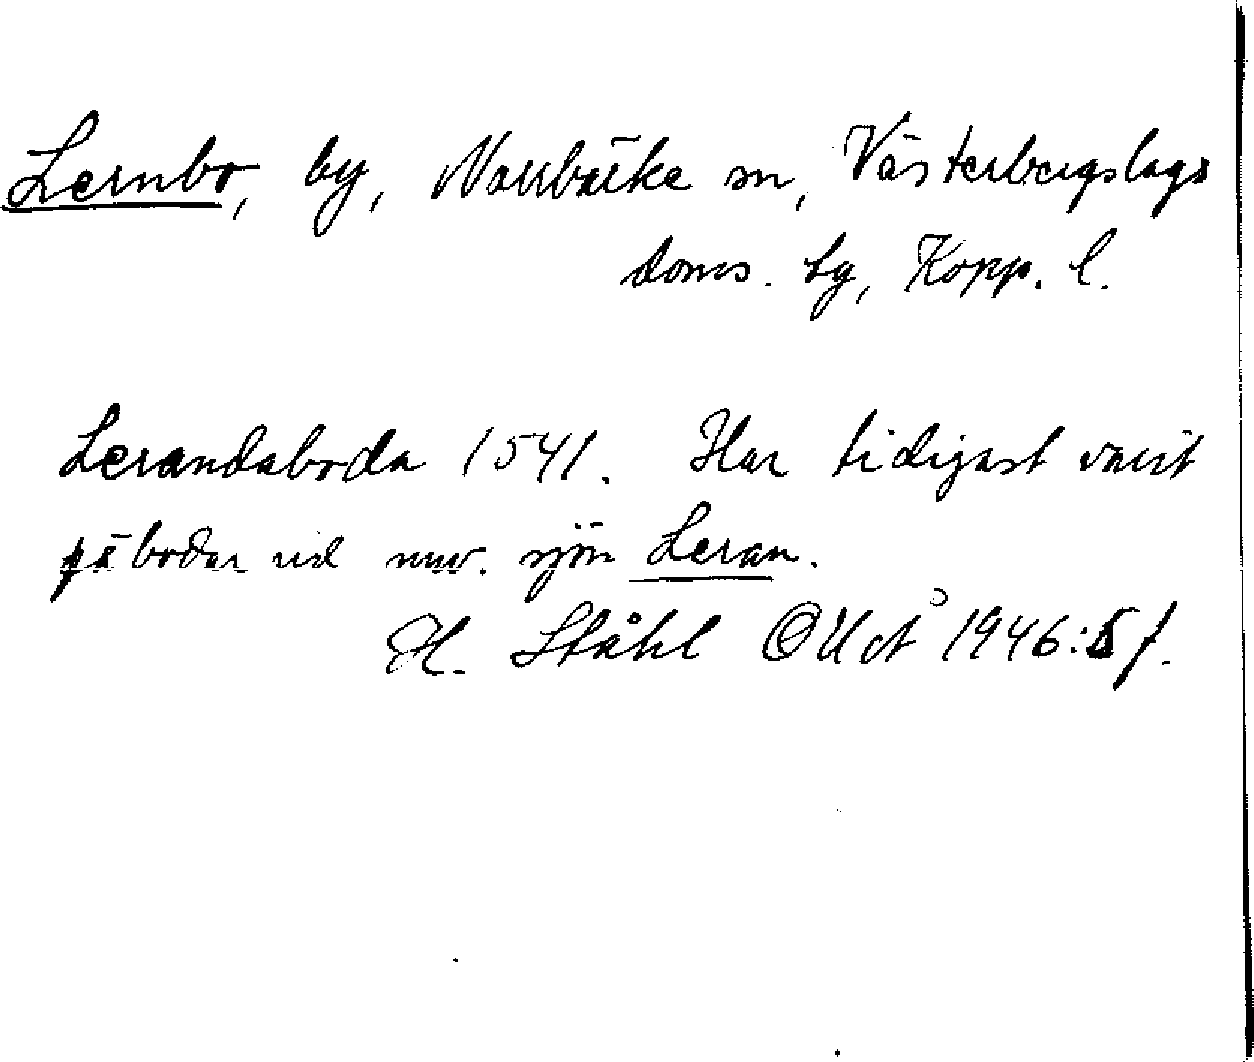 Lernbo, by, Norrbärke sn, Västerbergslags
doms. tg, Kopp. l.
Lerandaboda 1541. Har tidigast varit
fäbodar vid nuv. sjön Leran.
H. Ståhl OUÅ 1946: 5 f.